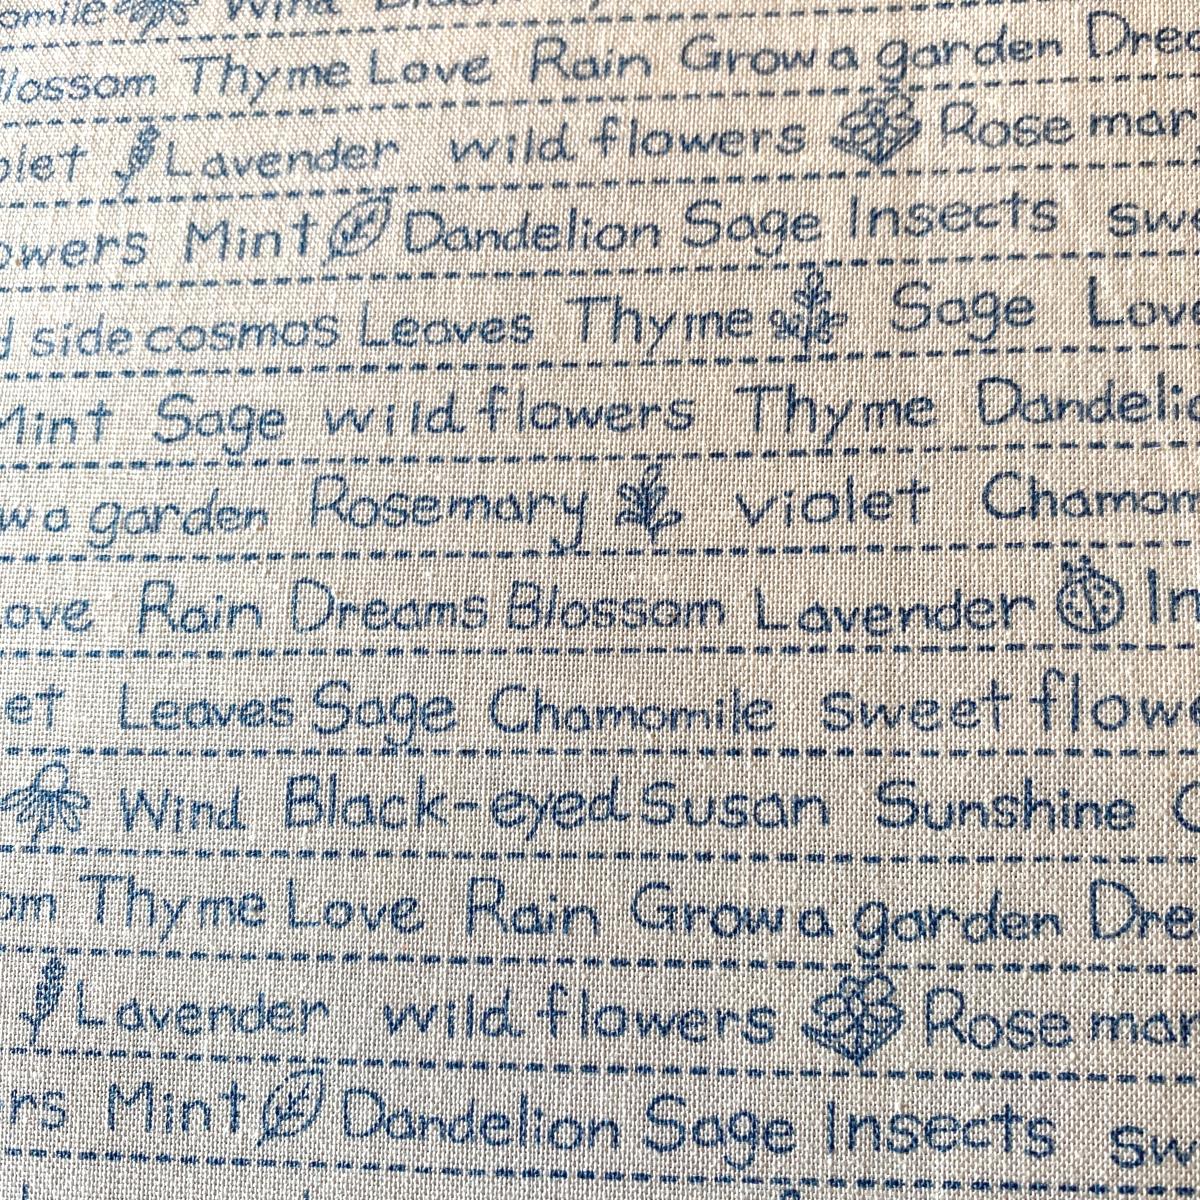 omile Wind
Blossom Thyme Love Rain Grow a garden Drea
olet Lavender wild flowers Rose mar
owers Mint Dandelion Sage Insects swe
d side cosmos Leaves Thyme Sage Love
Mint Sage wild flowers Thyme Dandelio
w a garden Rosemary violet Chamom
ove Rain Dreams Blossom Lavender In
et Leaves Sage Chamomile sweet flowe
Wind Black-eyed Susan Sunshine C
om Thyme Love Rain Grow a garden Drea
Lavender wild flowers Rose mar
ers Mint Dandelion Sage Insects sw